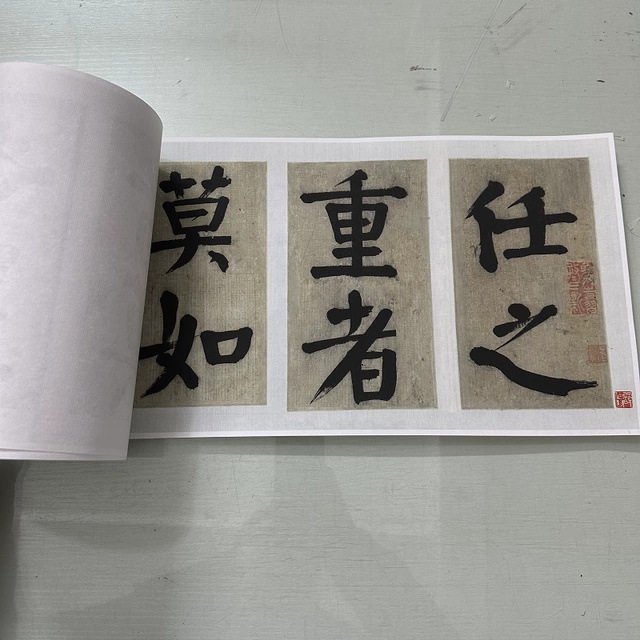 任之
重者
莫如